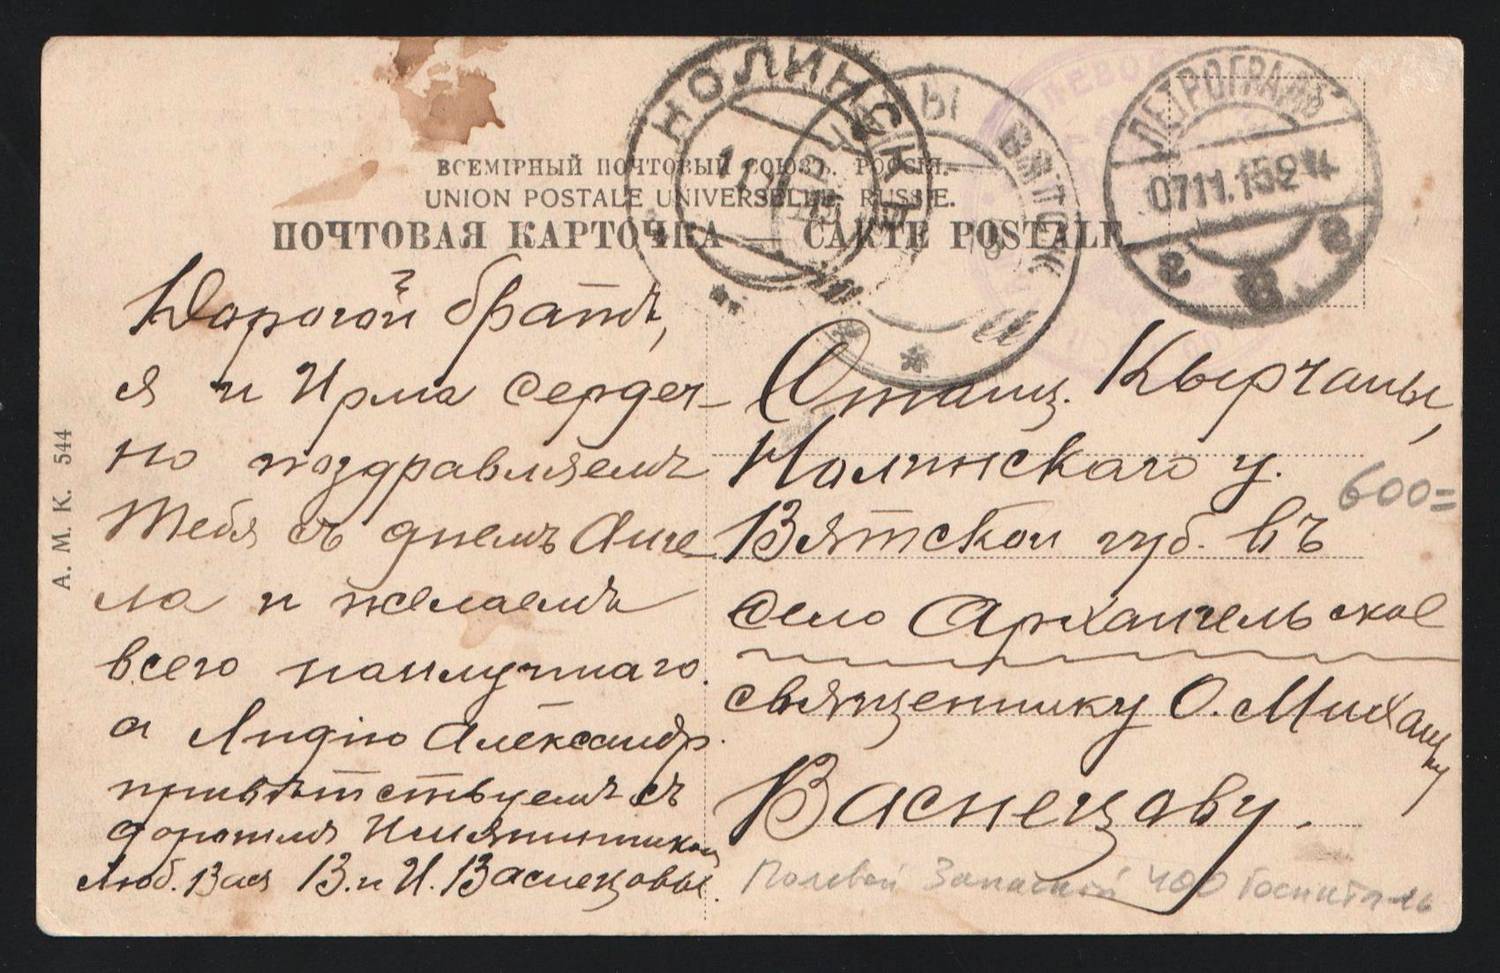 ВСЕМІРНЫЙ ПОЧТОВЫЙ СОЮЗЪ. РОССІЯ.
UNION POSTALE UNIVERSELLE. RUSSIE.
ПОЧТОВАЯ КАРТОЧКА — CARTE POSTALE
НОЛИНСК
ПЕТРОГРАДЪ
07.11.15
8
А. М. К. 544
Дорогой братъ,
я и Ирма сердеч-
но поздравляемъ
Тебя съ днемъ Анге
ла и желаемъ
всего наилучшаго.
а Лидію Александр.
привѣтствуемъ съ
дорогимъ Имянинником
Люб. Васъ В. и И. Васнецовы.
Станц. Кырчаны,
Нолинскаго у.
Вятской губ. въ
село Архангельское
священнику О. Михаилу
Васнецову.
600=
Полевой Запасной 400 Госпиталь